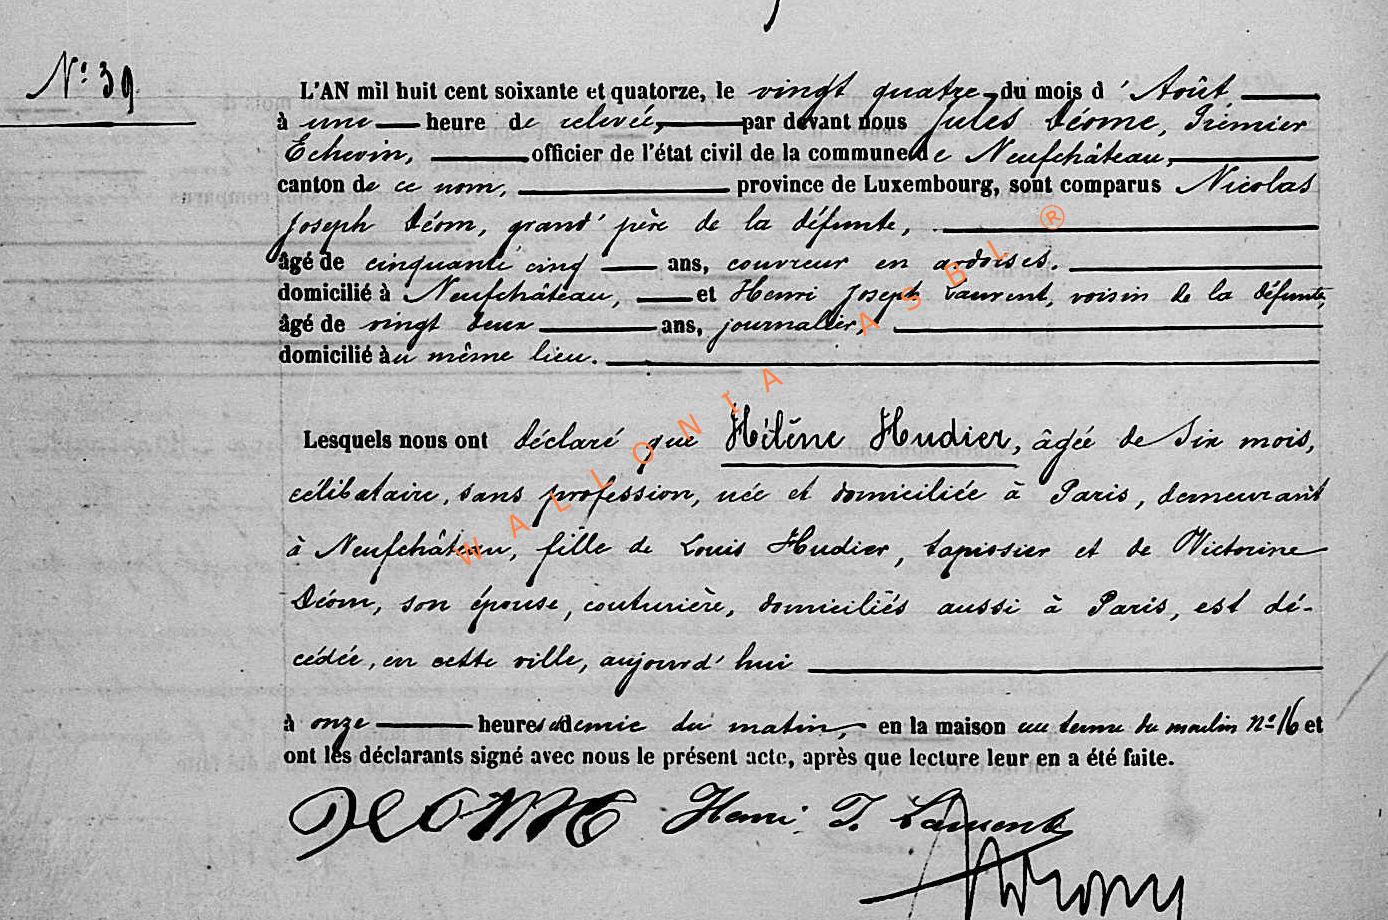 N° 39.
L'AN mil huit cent soixante et quatorze, le vingt quatre du mois d'Août
à une heure de relevée, par devant nous Jules Déome, Premier
Echevin, officier de l'état civil de la commune de Neufchâteau,
canton de ce nom, province de Luxembourg, sont comparus Nicolas
Joseph Déom, grand' père de la défunte,
âgé de cinquante cinq ans, couvreur en ardoises.
domicilié à Neufchâteau, et Henri Joseph Laurent, voisin de la défunte,
âgé de vingt deux ans, journalier,
domicilié au même lieu.
Lesquels nous ont déclaré que Hélène Hudier, âgée de Six mois,
célibataire, sans profession, née et domiciliée à Paris, demeurant
à Neufchâteau, fille de Louis Hudier, tapissier et de Victorine
Déom, son épouse, couturière, domiciliés aussi à Paris, est dé-
cédée, en cette ville, aujourd'hui
à onze heures et demie du matin, en la maison au du moulin N° 16 et
ont les déclarants signé avec nous le présent acte, après que lecture leur en a été faite.
Henri J. Laurent
WALLONIA ASBL ®